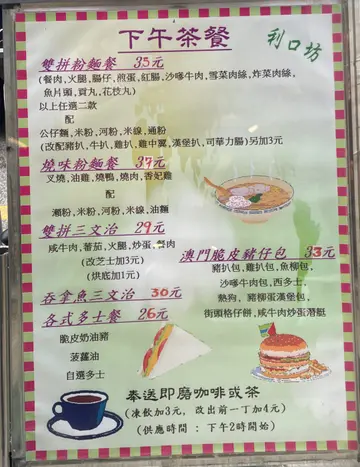 下午茶餐
利口坊
雙拼粉麵餐 35元
(餐肉,火腿,腸仔,煎蛋,紅腸,沙嗲牛肉,雪菜肉絲,炸菜肉絲,
魚片頭,貢丸,花枝丸)
以上任選二款
配
公仔麵,米粉,河粉,米線,通粉
(改配豬扒,牛扒,雞扒,雞中翼,漢堡扒,可華力腸)另加3元
燒味粉麵餐 37元
叉燒,油雞,燒鴨,燒肉,香妃雞
配
瀨粉,米粉,河粉,米線,油麵
雙拼三文治 29元
咸牛肉,蕃茄,火腿,炒蛋,餐肉
(改芝士加3元)
(烘底加1元)
澳門脆皮豬仔包 33元
豬扒包,雞扒包,魚柳包,
沙嗲牛肉包,西多士,
熱狗, 豬柳蛋漢堡包,
街頭格仔餅,咸牛肉炒蛋潛艇
吞拿魚三文治 30元
各式多士餐 26元
脆皮奶油豬
菠蘿油
自選多士
奉送即磨咖啡或茶
(凍飲加3元, 改出前一丁加4元)
(供應時間 : 下午2時開始)